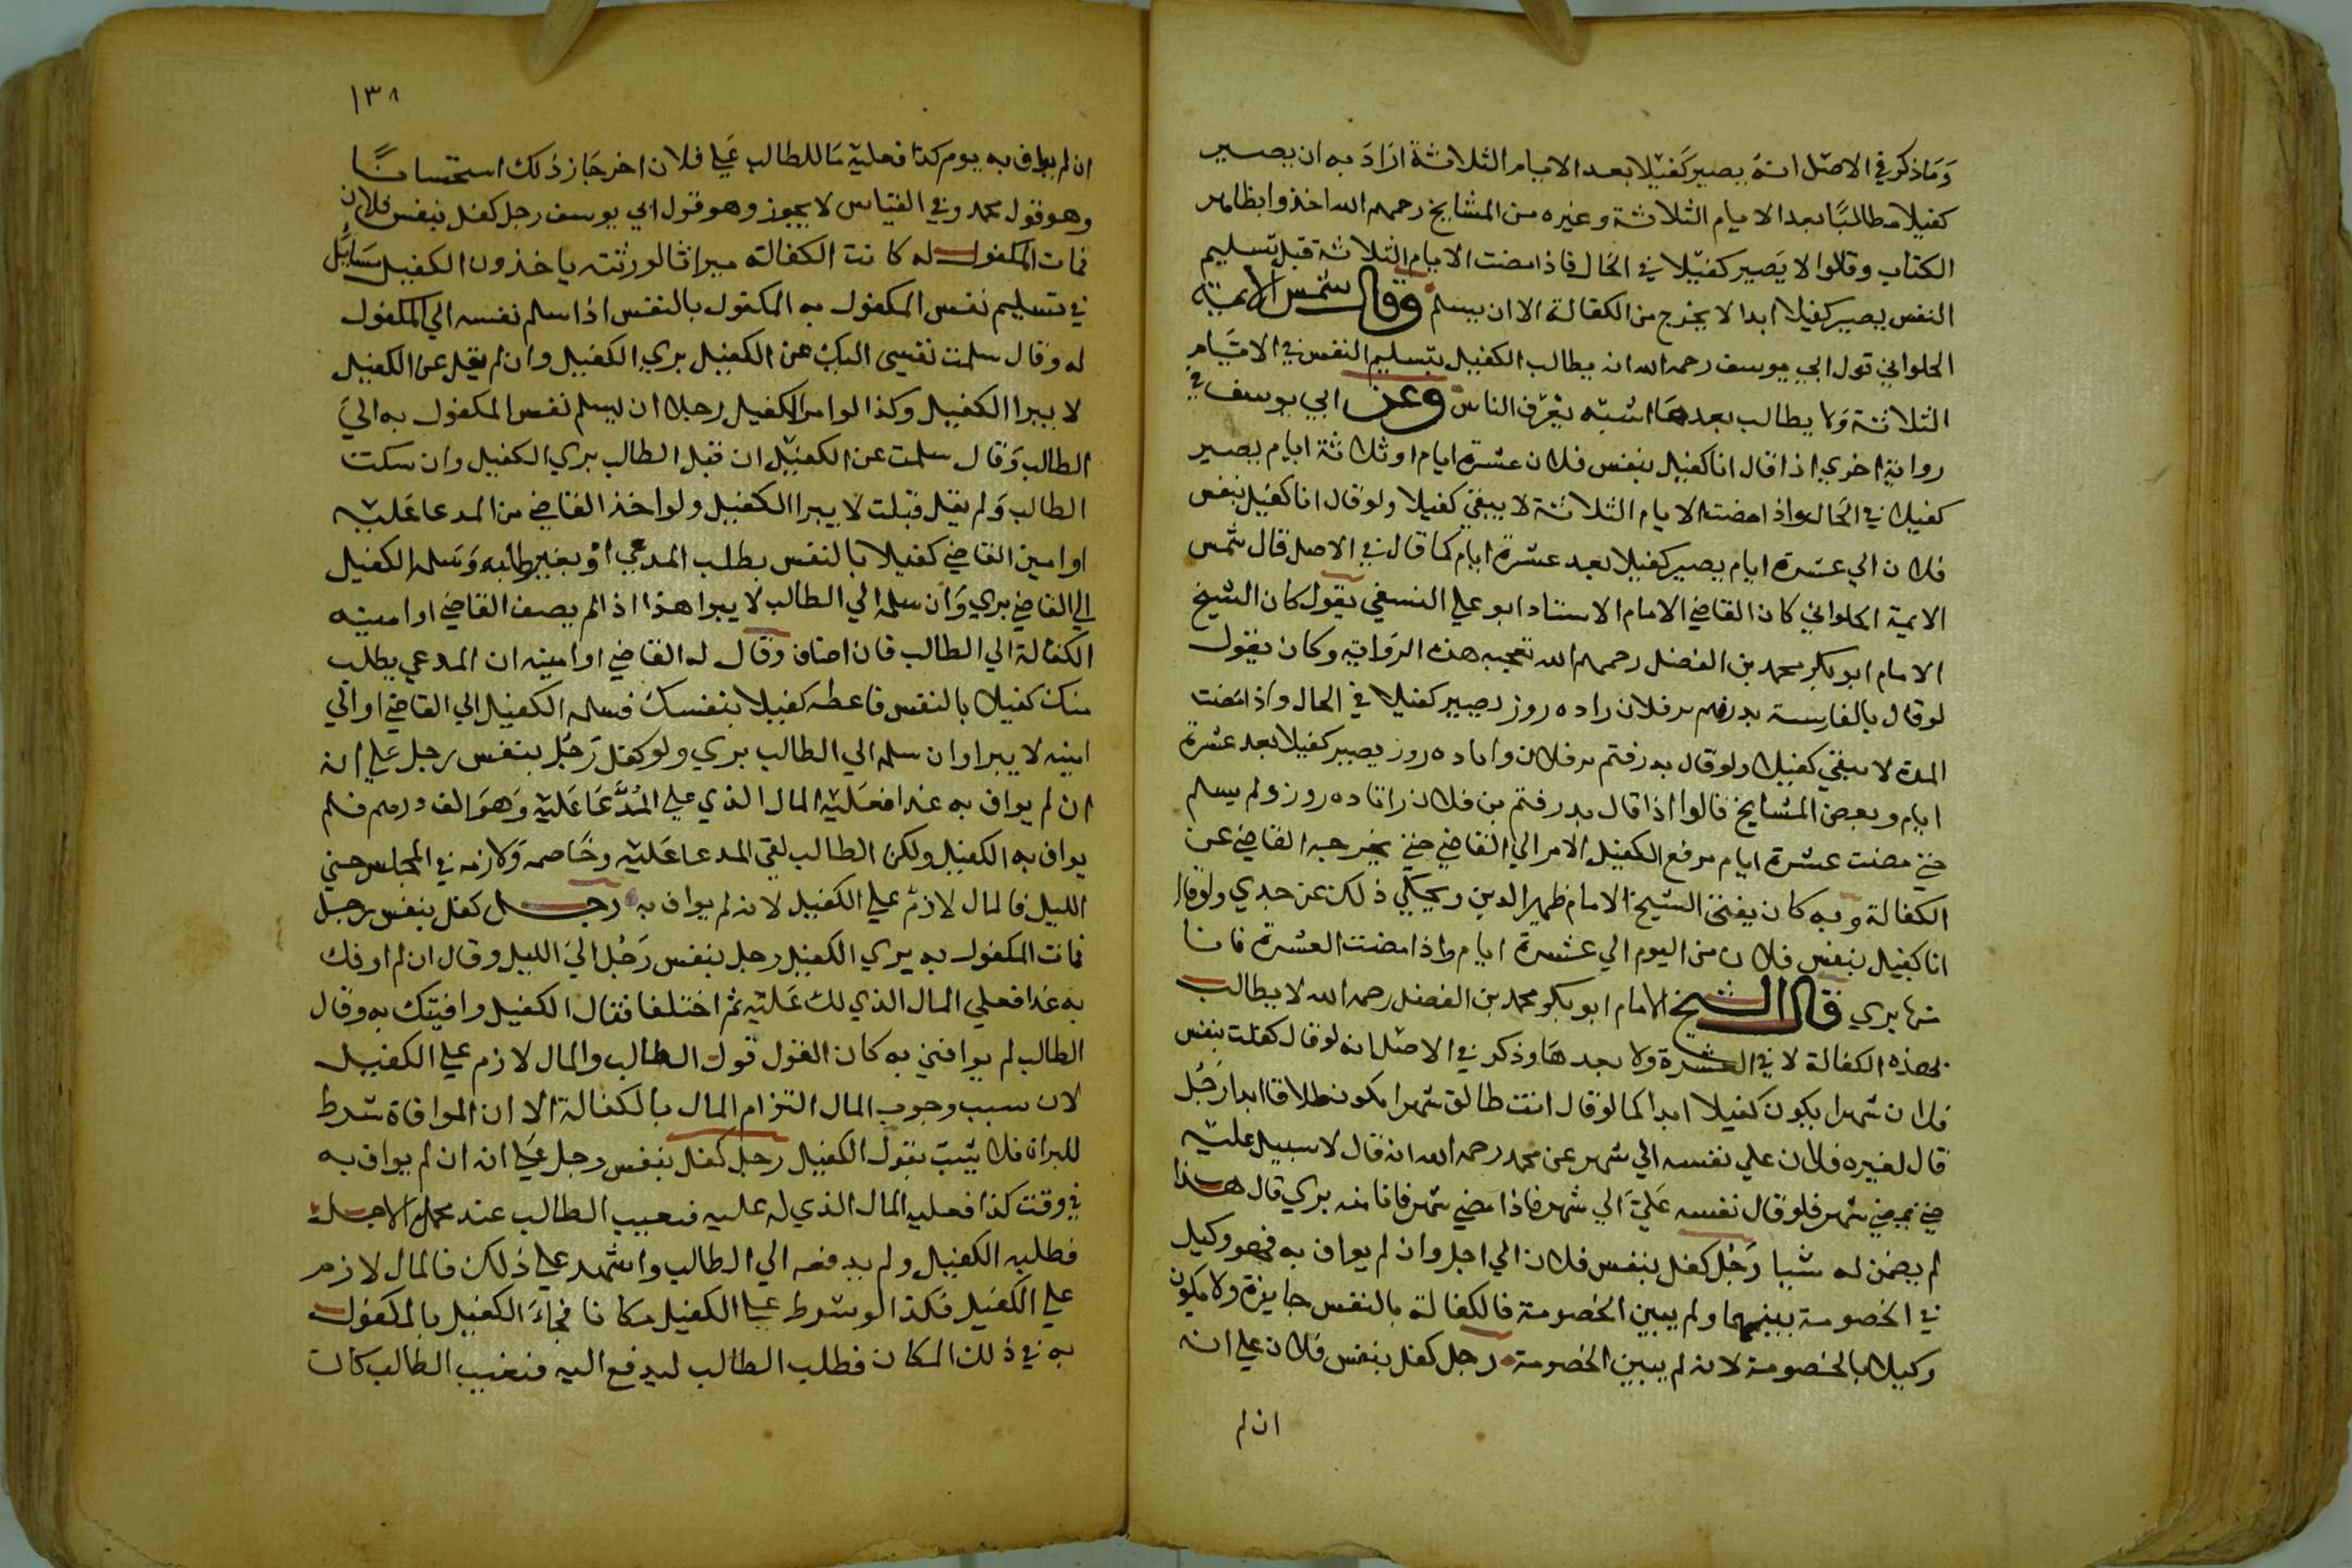 وَمَا ذكر في الاصل انه يصير كفيلا بعد الايام الثلاثة ارَادَ به ان يصير
كفيلا مطالبًا بعد الايام الثلاثة وغيره من المشايخ رحمهم الله اخذوا بظاهر
الكتاب وقالوا لا يَصير كفيلا في الحال فاذا مضت الايام الثلاثة قبل تسليم
النفس يصير كفيلا ابدا لا يخرج من الكفالة الا ان يسلم وقال شمس الايمة
الحلواني قول ابي يوسف رحمه الله انه يطالب الكفيل بتسليم النفس في الايام
الثلاثة وَلا يطالب بعدهَا اشبه بعُرف الناس وعن ابي يوسف في
رواية اخري اذا قال انا كفيل بنفس فلان عشرة ايام او ثلاثة ايام يصير
كفيلا في الحَال واذا مضت الايام الثلاثة لا يبقي كفيلا ولو قال انا كفيل بنفس
فلان الي عشرة ايام يصير كفيلا بعد عشرة ايام كما قال في الاصل قال شمس
الايمة الحلواني كان القاضي الامام الاستاد ابو علي النسفي يقول كان الشيخ
الامام ابو بكر محمد بن الفضل رحمهم الله تعجبه هذه الرواية وكان يقول
لو قال بالفارسية بدرفتم مر فلان را ده روز يصير كفيلا في الحال واذا مَضت
المدة لا يبقي كفيلا ولو قال بدرفتم مر فلان را تا ده روز يصير كفيلا بعد عشرة
ايام وبعض المشايخ قالوا اذا قال بدرفتم من فلان را تا ده روز ولم يسلم
حتي مضت عشرة ايام يرفع الكفيل الامر الي القاضي حتي يخرجه القاضي عن
الكفالة وبه كان يفتي الشيخ الامام ظهير الدين ويحكي ذلك عن جدي ولو قال
انا كفيل بنفس فلان من اليوم الي عشرة ايام واذا مضت العشرة فانا
منها بري قال الشيخ الامام ابو بكر محمد بن الفضل رحمه الله لا يطالب
بهذه الكفالة لا في العشرة ولا بعدهَا وذكر في الاصل انه لو قال كفلت بنفس
فلان شهرا يكون كفيلا ابدا كما لو قال انت طالق شهرا يكون طلاقا ابدا رَجُل
قال لغيره فلان علي نفسه الي شهر عن محمد رحمه الله انه قال لا سبيل عليه
حتي يمضي شهر فلو قال نفسه عَليّ الي شهر فاذا مضي شهر فانا منه بري قال هذا
لم يضمن له شيا رَجُل كفل بنفس فلان الي اجل وان لم يواف به فهو وكيل
في الخصومة بينهما ولم يبين الخصومة فالكفالة بالنفس جايزة ولا يكون
وكيلا بالخصومة لانه لم يبين الخصومة رجل كفل بنفس فلان علي انه
ان لم
١٣٨
ان لم يواف به يوم كذا فعليه مَا للطالب عَلي فلان اخر جَاز ذلك استحسانًا
وهو قول محمد وفي القياس لا يجوز وهو قول ابي يوسف رجل كفل بنفس فلان
فمات المكفول له كانت الكفالة ميراثا لورثته ياخذون الكفيل مسَايل
في تسليم نفس المكفول به المكفول بالنفس اذا سلم نفسه الي المكفول
له وقال سلمت نفسي اليك عن الكفيل بري الكفيل وان لم يقل عن الكفيل
لا يبرا الكفيل وكذا لو امر الكفيل رجلا ان يسلم نفس المكفول به اليَ
الطالب وَقال سلمت عن الكفيل ان قبل الطالب بري الكفيل وان سكت
الطالب وَلم يقل قبلت لا يبرا الكفيل ولو اخذ القاضي من المدعا عَليه
او امين القاضي كفيلا بالنفس بطلب المدعي اوْ بغير طلبه وَسَلمه الكفيل
الي القاضي بري وَان سلمه الي الطالب لا يبرا هذا اذا لم يضف القاضي او امينه
الكفالة الي الطالب فان اضاف وقال له القاضي او امينه ان المدعي يطلب
منك كفيلا بالنفس فاعطه كفيلا بنفسك فسلمه الكفيل الي القاضي او الي
امينه لا يبرا وان سلمه الي الطالب بري ولو كفل رَجُل بنفس رجل علي انه
ان لم يواف به غدا فعَليه المال الذي علي المُدَّعَا عَليه وَهوَ الف درهم فلم
يواف به الكفيل ولكن الطالب لقي المدعا عَليه وخَاصمه وَلازمه في المجلس حتي
الليل فالمال لازم علي الكفيل لانه لم يواف به رجل كفل بنفس رجل
فمات المكفول به بري الكفيل رجل بنفس رَجُل اليَ الليل وقال ان لم اوفك
به غدا فعلي المال الذي لك عَليه ثم اختلفا فقال الكفيل وافيتك به وقال
الطالب لم يوافني به كان القول قول الطالب والمال لازم علي الكفيل
لان سبب وجوب المال التزام المال بالكفالة الا ان الموافاة شرط
للبراة فلا يثبت بقول الكفيل رجل كفل بنفس رجل عَلي انه ان لم يواف به
في وقت كذا فعليه المال الذي له عليه فتغيب الطالب عند محل الاجل
فطلبه الكفيل ولم يدفعه الي الطالب واشهد علي ذلك فالمال لازم
علي الكفيل فكذا لو شرط علي الكفيل مكانا فجاءَ الكفيل بالمكفول
به في ذلك المكان فطلب الطالب ليدفع اليه فتغيب الطالب كان